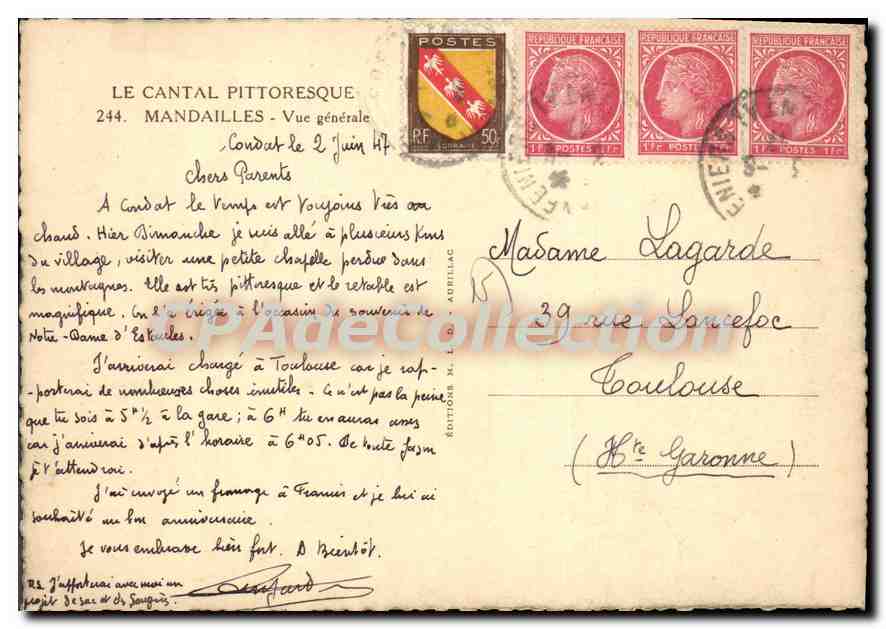 LE CANTAL PITTORESQUE
244. MANDAILLES - Vue générale
Condat le 2 Juin 47
Chers Parents
A Condat le temps est toujours très
chaud. Hier Dimanche je suis allé à plusieurs Kms
du village, visiter une petite chapelle perdue dans
les montagnes. Elle est très pittoresque et le retable est
magnifique. On l'a érigée à l'occasion du souvenir de
Notre-Dame d'Estaules.
J'arriverai chargé à Toulouse car je rap-
-porterai de nombreuses choses inutiles - Ce n'est pas la peine
que tu sois à 5H½ à la gare ; à 6H tu en auras assez
car j'arriverai d'après l'horaire à 6H05. De toute façon
je t'attendrai.
J'ai envoyé un fromage à Francis et je lui ai
souhaité un bon anniversaire.
Je vous embrasse bien fort. A Bientôt.
P.S. J'apporterai avec moi un
projet de sac et des
POSTES
RF
50c
LORRAINE
REPUBLIQUE FRANÇAISE
1Fr POSTES 1Fr
REPUBLIQUE FRANÇAISE
1Fr POSTES 1Fr
REPUBLIQUE FRANÇAISE
1Fr POSTES 1Fr
Madame Lagarde
39 rue Lancefoc
Toulouse
(Hte Garonne)
ÉDITIONS M., L. D., AURILLAC
CPAdeCollection